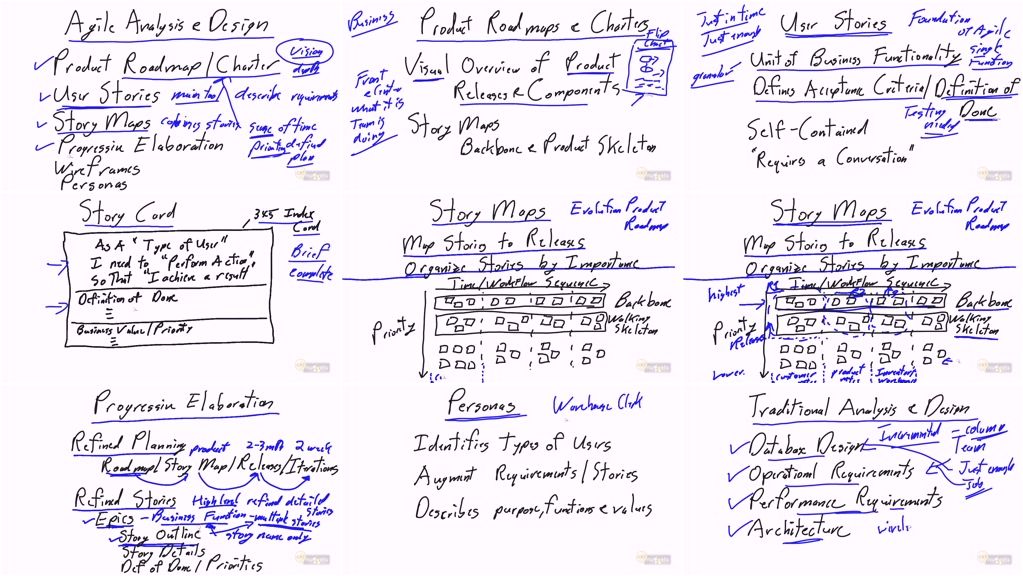 Agile Analysis & Design
Product Roadmap / Charter
Vision
draft
User Stories main tool describe requirements
Story Maps combines stories
sense of time
Progressive Elaboration
priority defined
plan
Wireframes
Personas
Business
Product Roadmaps & Charters
Flip
Chart
Visual Overview of Product
Releases & Components
Front
what it is
Team is
doing
Story Maps
Backbone & Product Skeleton
Just in time
Just enough
granular
User Stories
Foundation
of Agile
single
function
Unit of Business Functionality
Defines Acceptance Criteria / Definition of
Done
Testing
Self-Contained
"Requires a Conversation"
Story Card
3x5 Index
Card
Brief
complete
As A "Type of User"
I need to "Perform Action",
so that "I achieve a result"
Definition of Done
Business Value / Priority
Story Maps
Evolution Product
Roadmap
Map Stories to Releases
Organize Stories by Importance
Time / Workflow Sequence
Priority
Backbone
Walking
Skeleton
Story Maps
Evolution Product
Roadmap
Map Stories to Releases
Organize Stories by Importance
Time / Workflow Sequence
highest
R1
Priority
Release
Lower
Backbone
Walking
Skeleton
customer
product
Inventory
warehouse
Progressive Elaboration
Refined Planning
product 2-3 mth 2 week
Roadmap / Story Map / Release / Iterations
Refined Stories High level refined detailed
stories
Epics - Business Function - multiple stories
Story Outline story name only
Story Details
Def of Done / Priorities
Personas
Warehouse Clerk
Identifies Types of Users
Augment Requirements / Stories
Describes purpose, functions & values
Traditional Analysis & Design
Database Design
Incremental - column
Team
Operational Requirements
Just enough
Performance Requirements
Architecture